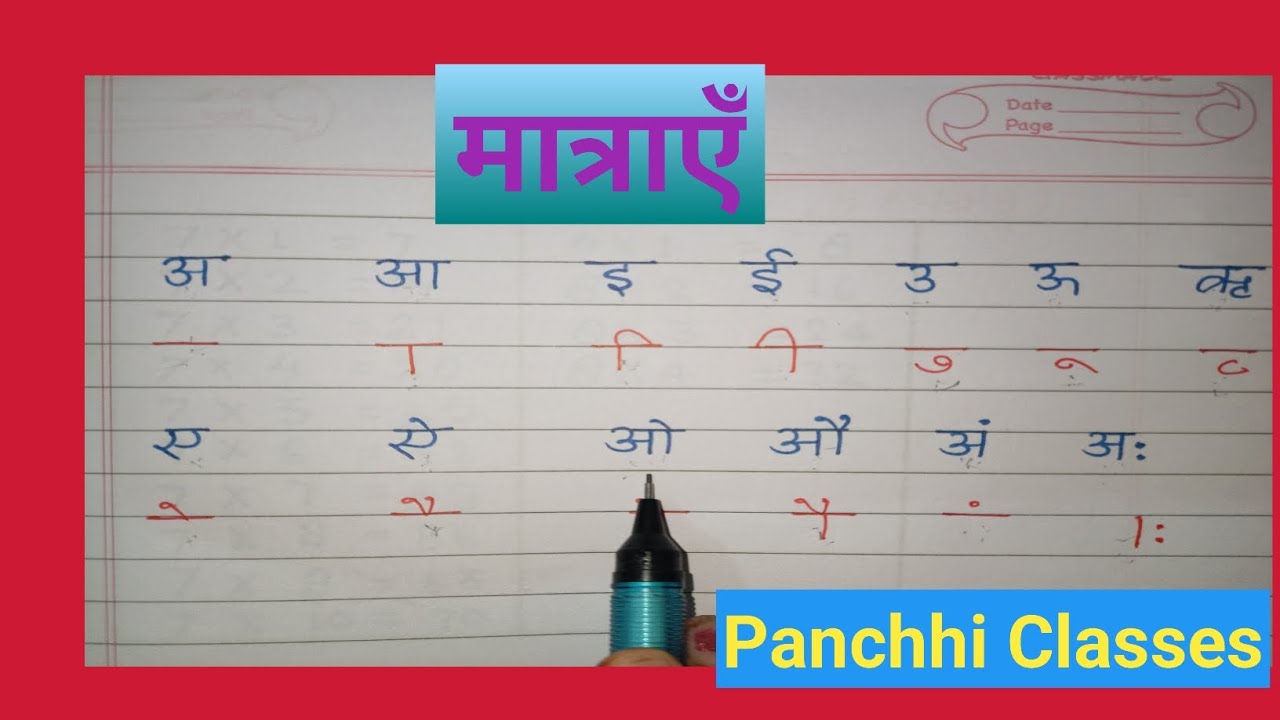 मात्राएँ
Date
Page
अ आ इ ई उ ऊ ऋ
ा ि ी ु ू ृ
ए ऐ ओ औ अं अः
े ै ौ ं ाः
Panchhi Classes